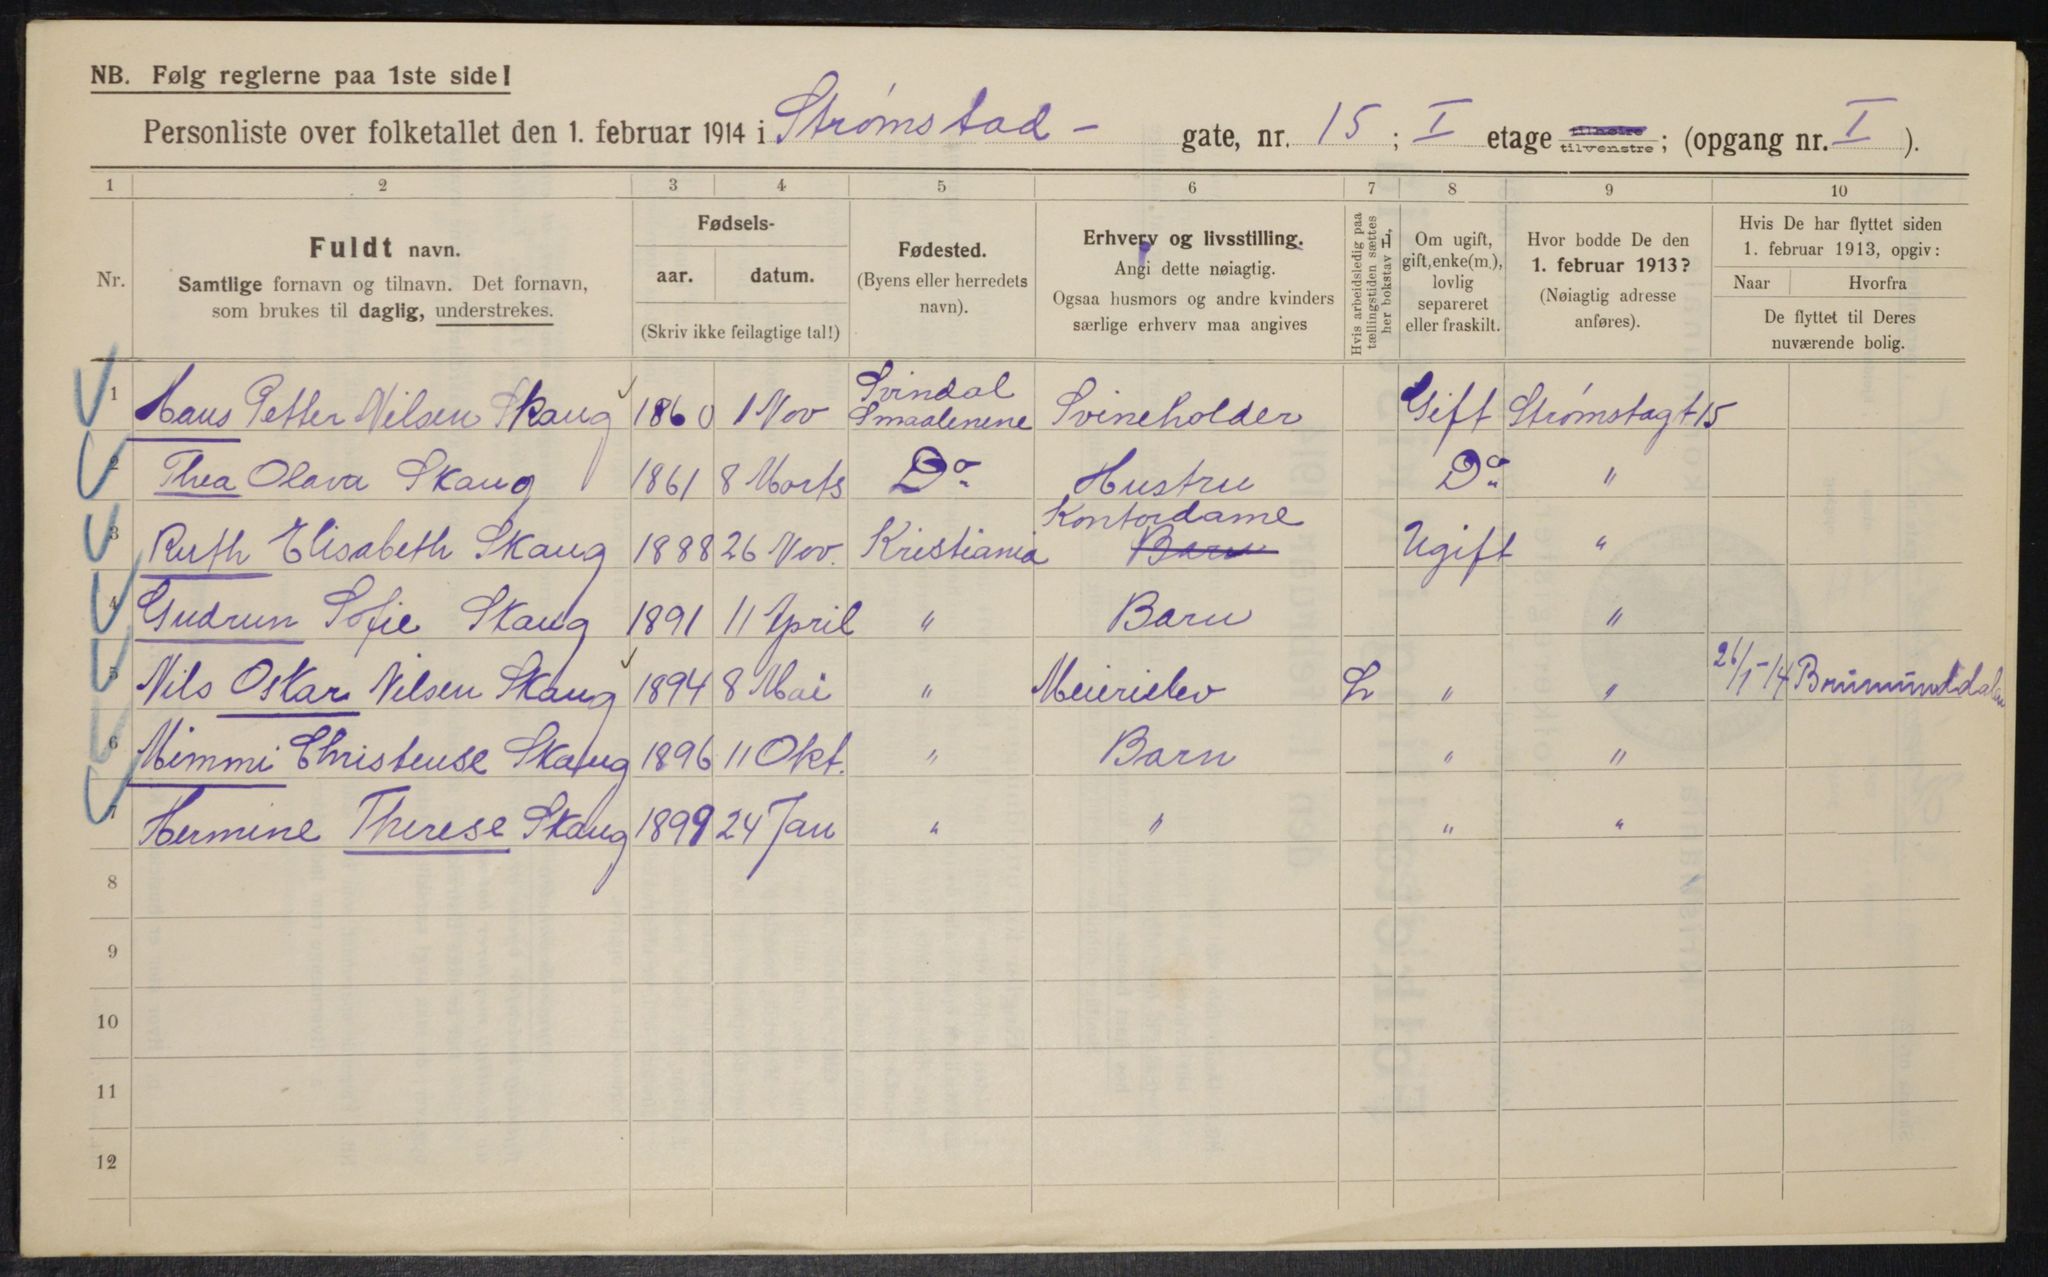 NB. Følg reglerne paa 1ste side!
Personliste over folketallet den 1. februar 1914 i Strømstad- gate, nr. 15; I etage tilhøire tilvenstre; (opgang nr. I ).
1 2 3 4 5 6 7 8 9 10
Nr.
Fuldt navn.
Samtlige fornavn og tilnavn. Det fornavn,
som brukes til daglig, understrekes.
Fødsels-
aar. datum.
(Skriv ikke feilagtige tal!)
Fødested.
(Byens eller herredets
navn).
Erhverv og livsstilling.
Angi dette nøiagtig.
Ogsaa husmors og andre kvinders
særlige erhverv maa angives
Hvis arbeidsledig paa
tællingstiden sættes
her bokstav L.
Om ugift,
gift, enke(m.),
lovlig
separeret
eller fraskilt.
Hvor bodde De den
1. februar 1913?
(Nøiagtig adresse
anføres).
Hvis De har flyttet siden
1. februar 1913, opgiv:
Naar Hvorfra
De flyttet til Deres
nuværende bolig.
1 Hans Petter Nilsen Skaug 1860 1 Nov Svindal Smaalenene Svineholder Gift Strømstagt 15
2 Thea Olava Skaug 1861 8 Marts Do Hustru Do "
3 Ruth Elisabeth Skaug 1888 26 Nov. Kristiania Kontordame Barn Ugift "
4 Gudrun Sofie Skaug 1891 11 April " Barn "
5 Nils Oskar Nilsen Skaug 1894 8 Mai " Meierielev L " " 26/1-14 Brumunddalen
6 Mimmi Christense Skaug 1896 11 Okt. " Barn " "
7 Hermine Therese Skaug 1899 24 Jan " " " "
8
9
10
11
12